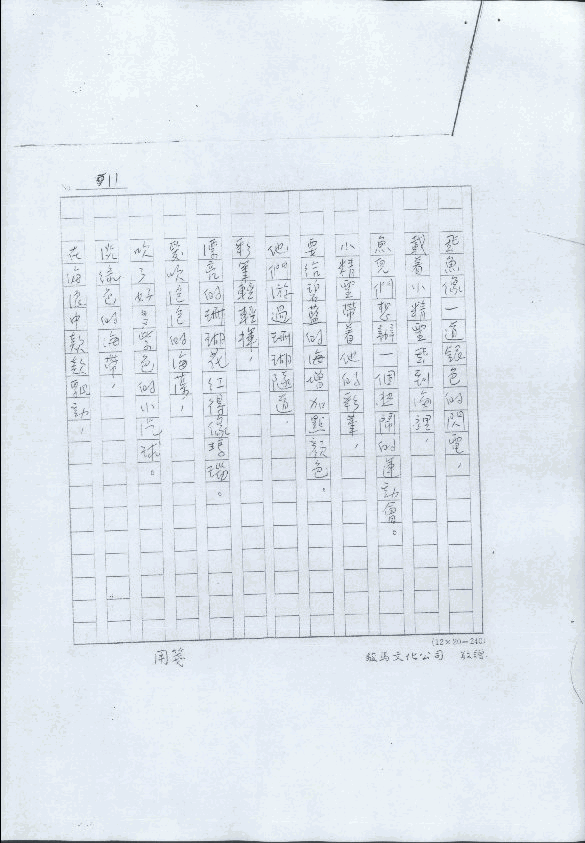 11
飛魚像一道銀色的閃電，
載着小精靈來到海裡，
魚兒們想辦一個熱鬧的運動會。
小精靈帶着他的彩筆，
要給碧藍的海增加點顏色。
他們游過珊瑚隧道，
彩筆輕輕揮，
漂亮的珊瑚花紅得像瑪瑙。
愛吹泡泡的海藻，
吹了好多紫色的小汽球。
淺綠色的海帶，
在海浪中款款飄動，
(12×20=240)
駿馬文化公司 敬贈
用箋